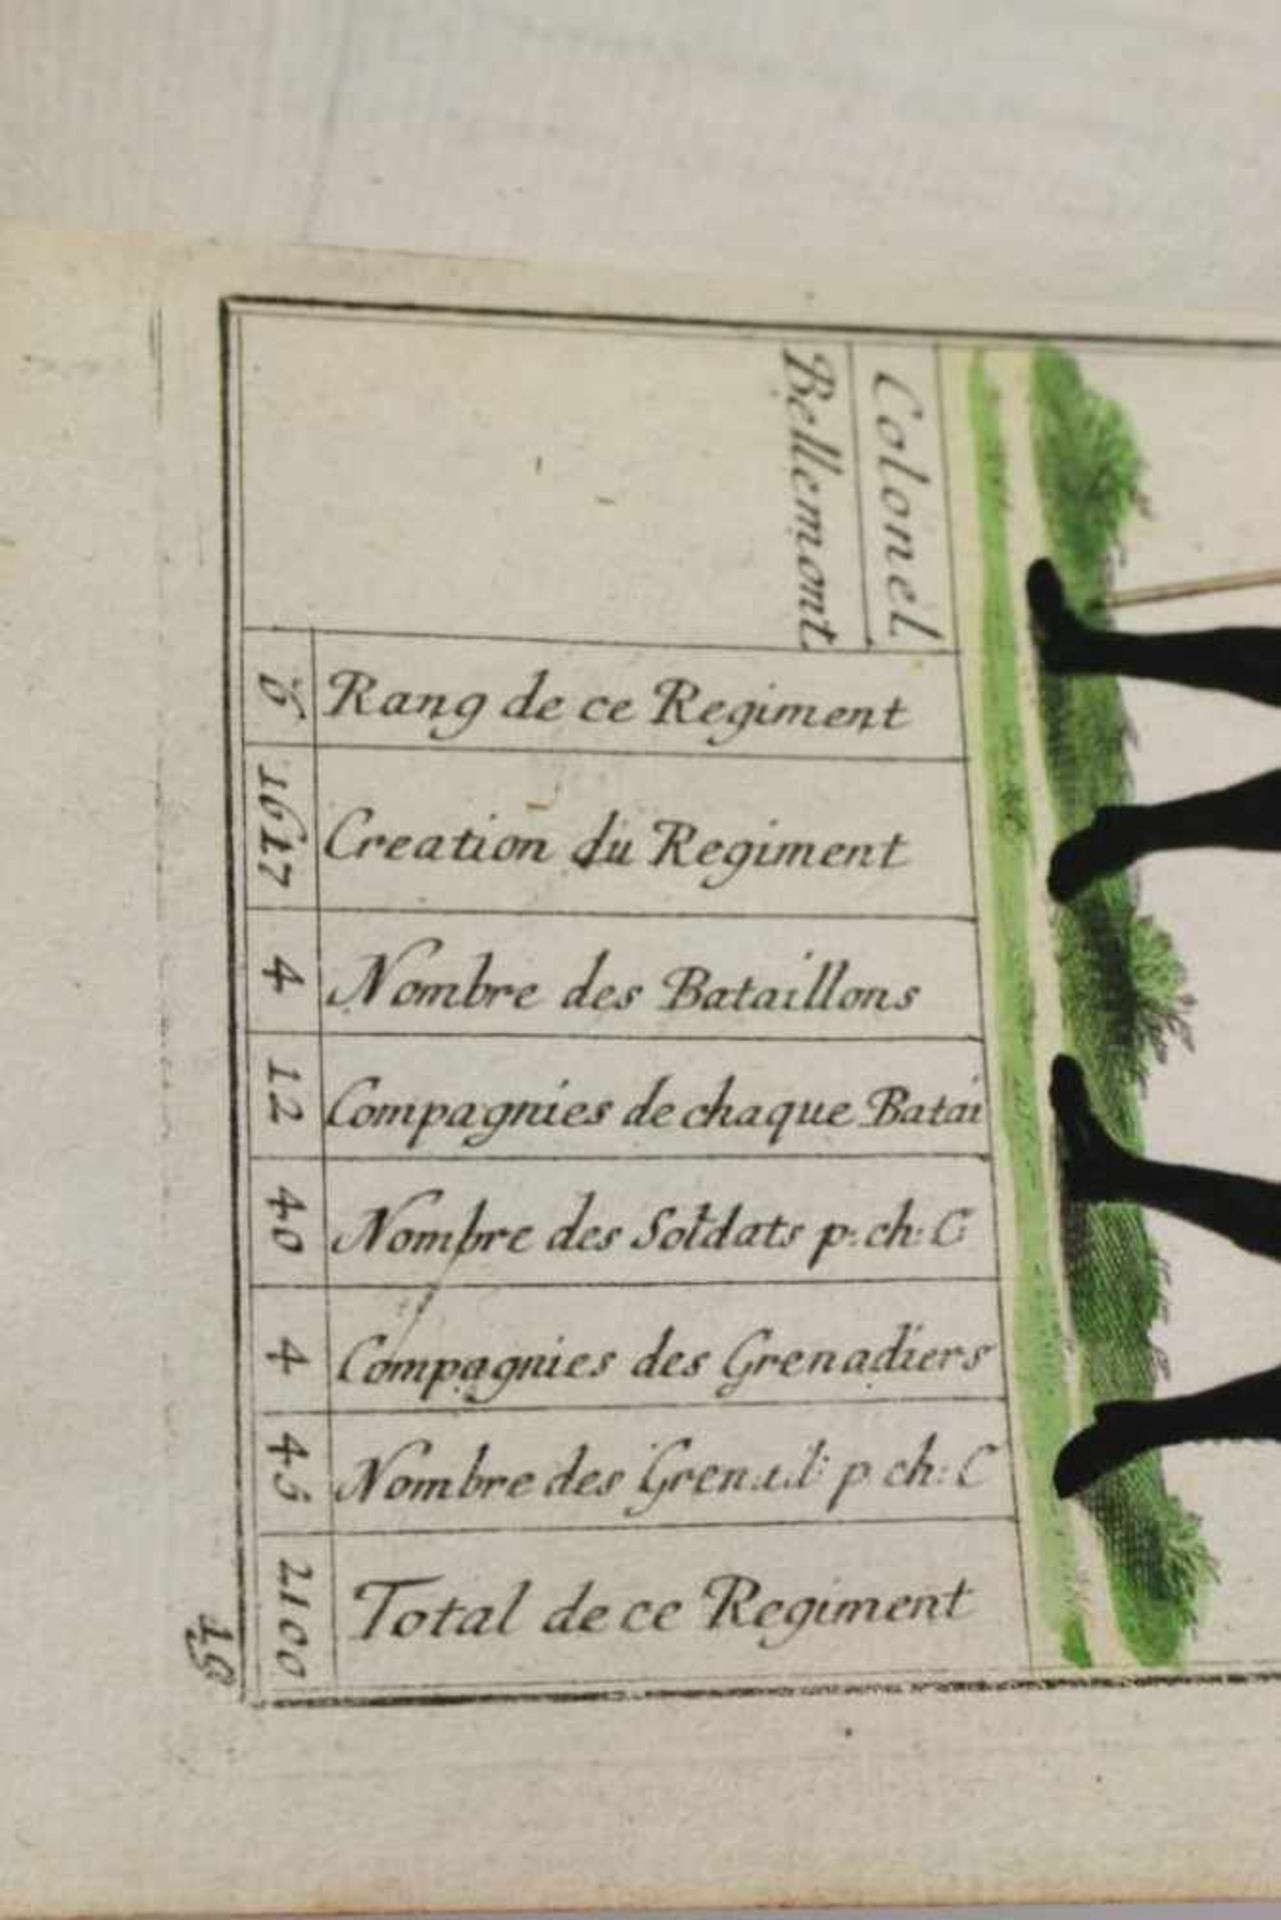 Colonel
Bellemont
Rang de ce Regiment
Creation du Regiment 1617
Nombre des Bataillons 4
Compagnies de chaque Batai 12
Nombre des Soldats p: ch: C 40
Compagnies des Grenadiers 4
Nombre des Grenad: p ch: C 45
Total de ce Regiment 2100